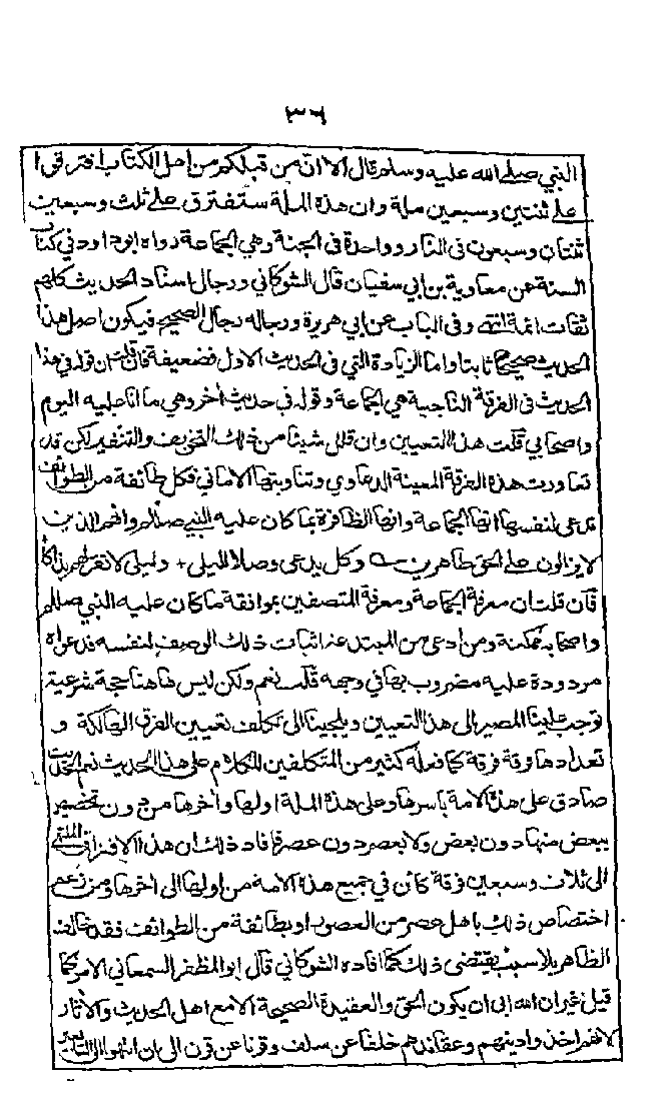 ٣٣
النبي صلے الله عليه وسلم قال الا ان من قبلكم من اهل الكتاب افترقوا
على ثنتين وسبعين ملة وان هذه الملة ستفترق على ثلث وسبعين
ثنتان وسبعون فى النار وواحدة فى الجنة وهي الجماعة رواه ابو داود في كتاب
السنة عن معاوية بن ابي سفيان قال الشوكاني ورجال اسناد الحديث كلهم
ثقات ائمة انتهى وفى الباب عن ابي هريرة ورجاله رجال الصحيح فيكون اصل هذا
الحديث صحيحا ثابتا واما الزيادة التي فى الحديث الاول فضعيفة فان قلت ان قوله في هذا
الحديث فى الفرقة الناجية هي الجماعة وقوله في حديث اخر وهي ما انا عليه اليوم
واصحابي قلت هذا التعيين وان قلل شيئا من ذلك التخويف والتنفير لكن قد
تعاورت هذه الفرقة المعينة الدعاوي وتناوبتها الاماني فكل طائفة من الطوائف
تدعى لنفسها انها الجماعة وانها الظافرة بما كان عليه النبي صلالم وانهم الذين
لا يزالون على الحق ظاهرين وكل يدعى وصلا لليلى + وليلى لا تقر لهم بذاكا
فان قلت ان معرفة الجماعة ومعرفة المتصفين بموافقة ما كان عليه النبي صلالم
واصحابه ممكنة ومن ادعى من المبتدعة اثبات ذلك الوصف لنفسه فدعواه
مردودة عليه مضروب بها في وجهه قلت نعم ولكن ليس هاهنا حجة شرعية
توجب علينا المصير الى هذا التعيين ويلجينا الى تكلف تعيين الفرق الهالكة و
تعدادها فرقة فرقة كما فعله كثير من المتكلفين للكلام على هذا الحديث نعم الحديث
صادق على هذه الامة باسرها وعلى هذه الملة اولها واخرها من دون تخصيص
ببعض منها دون بعض ولا بعصر دون عصر فافاد ذلك ان هذا الافتراق المنتهى
الى ثلاث وسبعين فرقة كائن في جميع هذه الامة من اولها الى اخرها ومن زعم
اختصاص ذلك باهل عصر من العصور او بطائفة من الطوائف فقد خالف
الظاهر بلا سبب يقتضى ذلك كما افاده الشوكاني قال ابو المظفر السمعاني الامر كما
قيل غير ان الله ابى ان يكون الحق والعقيدة الصحيحة الا مع اهل الحديث والاثار
لانهم اخذوا دينهم وعقائدهم خلفا عن سلف وقرنا عن قرن الى ان انتهوا الى التابعين